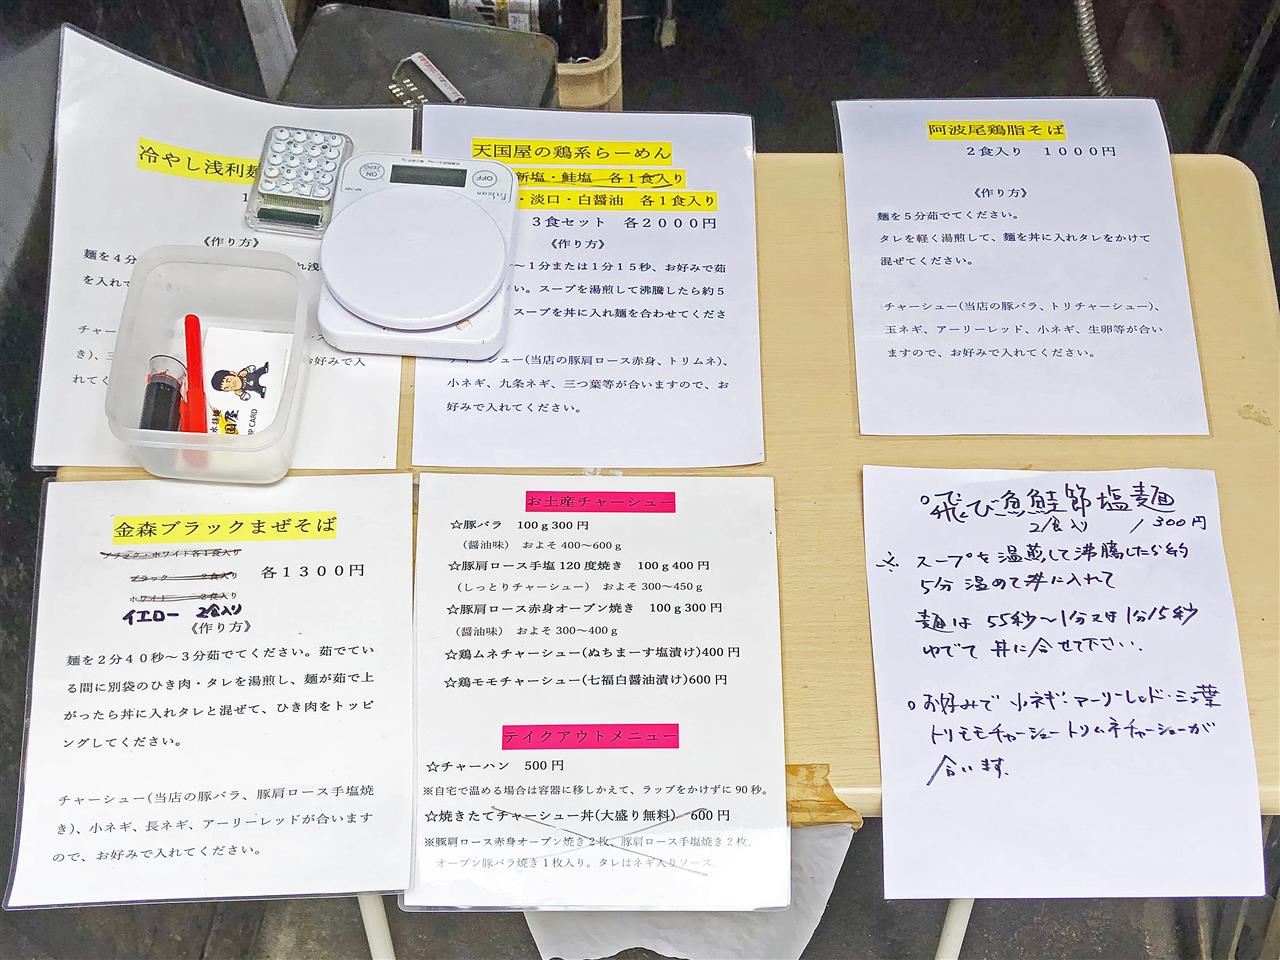 冷やし浅利麺
《作り方》
麺を４分
を入れて
天国屋の鶏系らーめん
新塩・鮭塩　各１食入り
・淡口・白醤油　各１食入り
３食セット　各２０００円
《作り方》
～１分または１分１５秒、お好みで茹
い。スープを湯煎して沸騰したら約５
スープを丼に入れ麺を合わせてくださ
チャーシュー(当店の豚肩ロース赤身、トリムネ)、
小ネギ、九条ネギ、三つ葉等が合いますので、お
好みで入れてください。
阿波尾鶏脂そば
２食入り　１０００円
《作り方》
麺を５分茹でてください。
タレを軽く湯煎して、麺を丼に入れタレをかけて
混ぜてください。
チャーシュー(当店の豚バラ、トリチャーシュー)、
玉ネギ、アーリーレッド、小ネギ、生卵等が合い
ますので、お好みで入れてください。
OFF
ON
金森ブラックまぜそば
ブラック・ホワイト各１食入り
ブラック　２食入り
各１３００円
ホワイト　２食入り
イエロー　2食入り
《作り方》
麺を２分４０秒～３分茹でてください。茹でてい
る間に別袋のひき肉・タレを湯煎し、麺が茹で上
がったら丼に入れタレと混ぜて、ひき肉をトッピ
ングしてください。
チャーシュー(当店の豚バラ、豚肩ロース手塩焼
き)、小ネギ、長ネギ、アーリーレッドが合います
ので、お好みで入れてください。
お土産チャーシュー
☆豚バラ　100ｇ300円
（醤油味）　およそ400～600ｇ
☆豚肩ロース手塩120度焼き　100ｇ400円
（しっとりチャーシュー）　およそ300～450ｇ
☆豚肩ロース赤身オーブン焼き　100ｇ300円
（醤油味）　およそ300～400ｇ
☆鶏ムネチャーシュー(ぬちまーす塩漬け)400円
☆鶏モモチャーシュー(七福白醤油漬け)600円
テイクアウトメニュー
☆チャーハン　500円
※自宅で温める場合は容器に移しかえて、ラップをかけずに90秒。
☆焼きたてチャーシュー丼(大盛り無料)　600円
※豚肩ロース赤身オーブン焼き２枚、豚肩ロース手塩焼き２枚、
オーブン豚バラ焼き１枚入り。タレはネギ入りソース。
○飛び魚鮭節塩麺
2食入り　1300円
※ スープを温煎して沸騰したら約
5分温めて丼に入れて
麺は 55秒～1分又は1分15秒
ゆでて 丼に合せて下さい。
○お好みで 小ネギ・アーリーレッド・三ツ葉
トリモモチャーシュートリムネチャーシューが
合います。